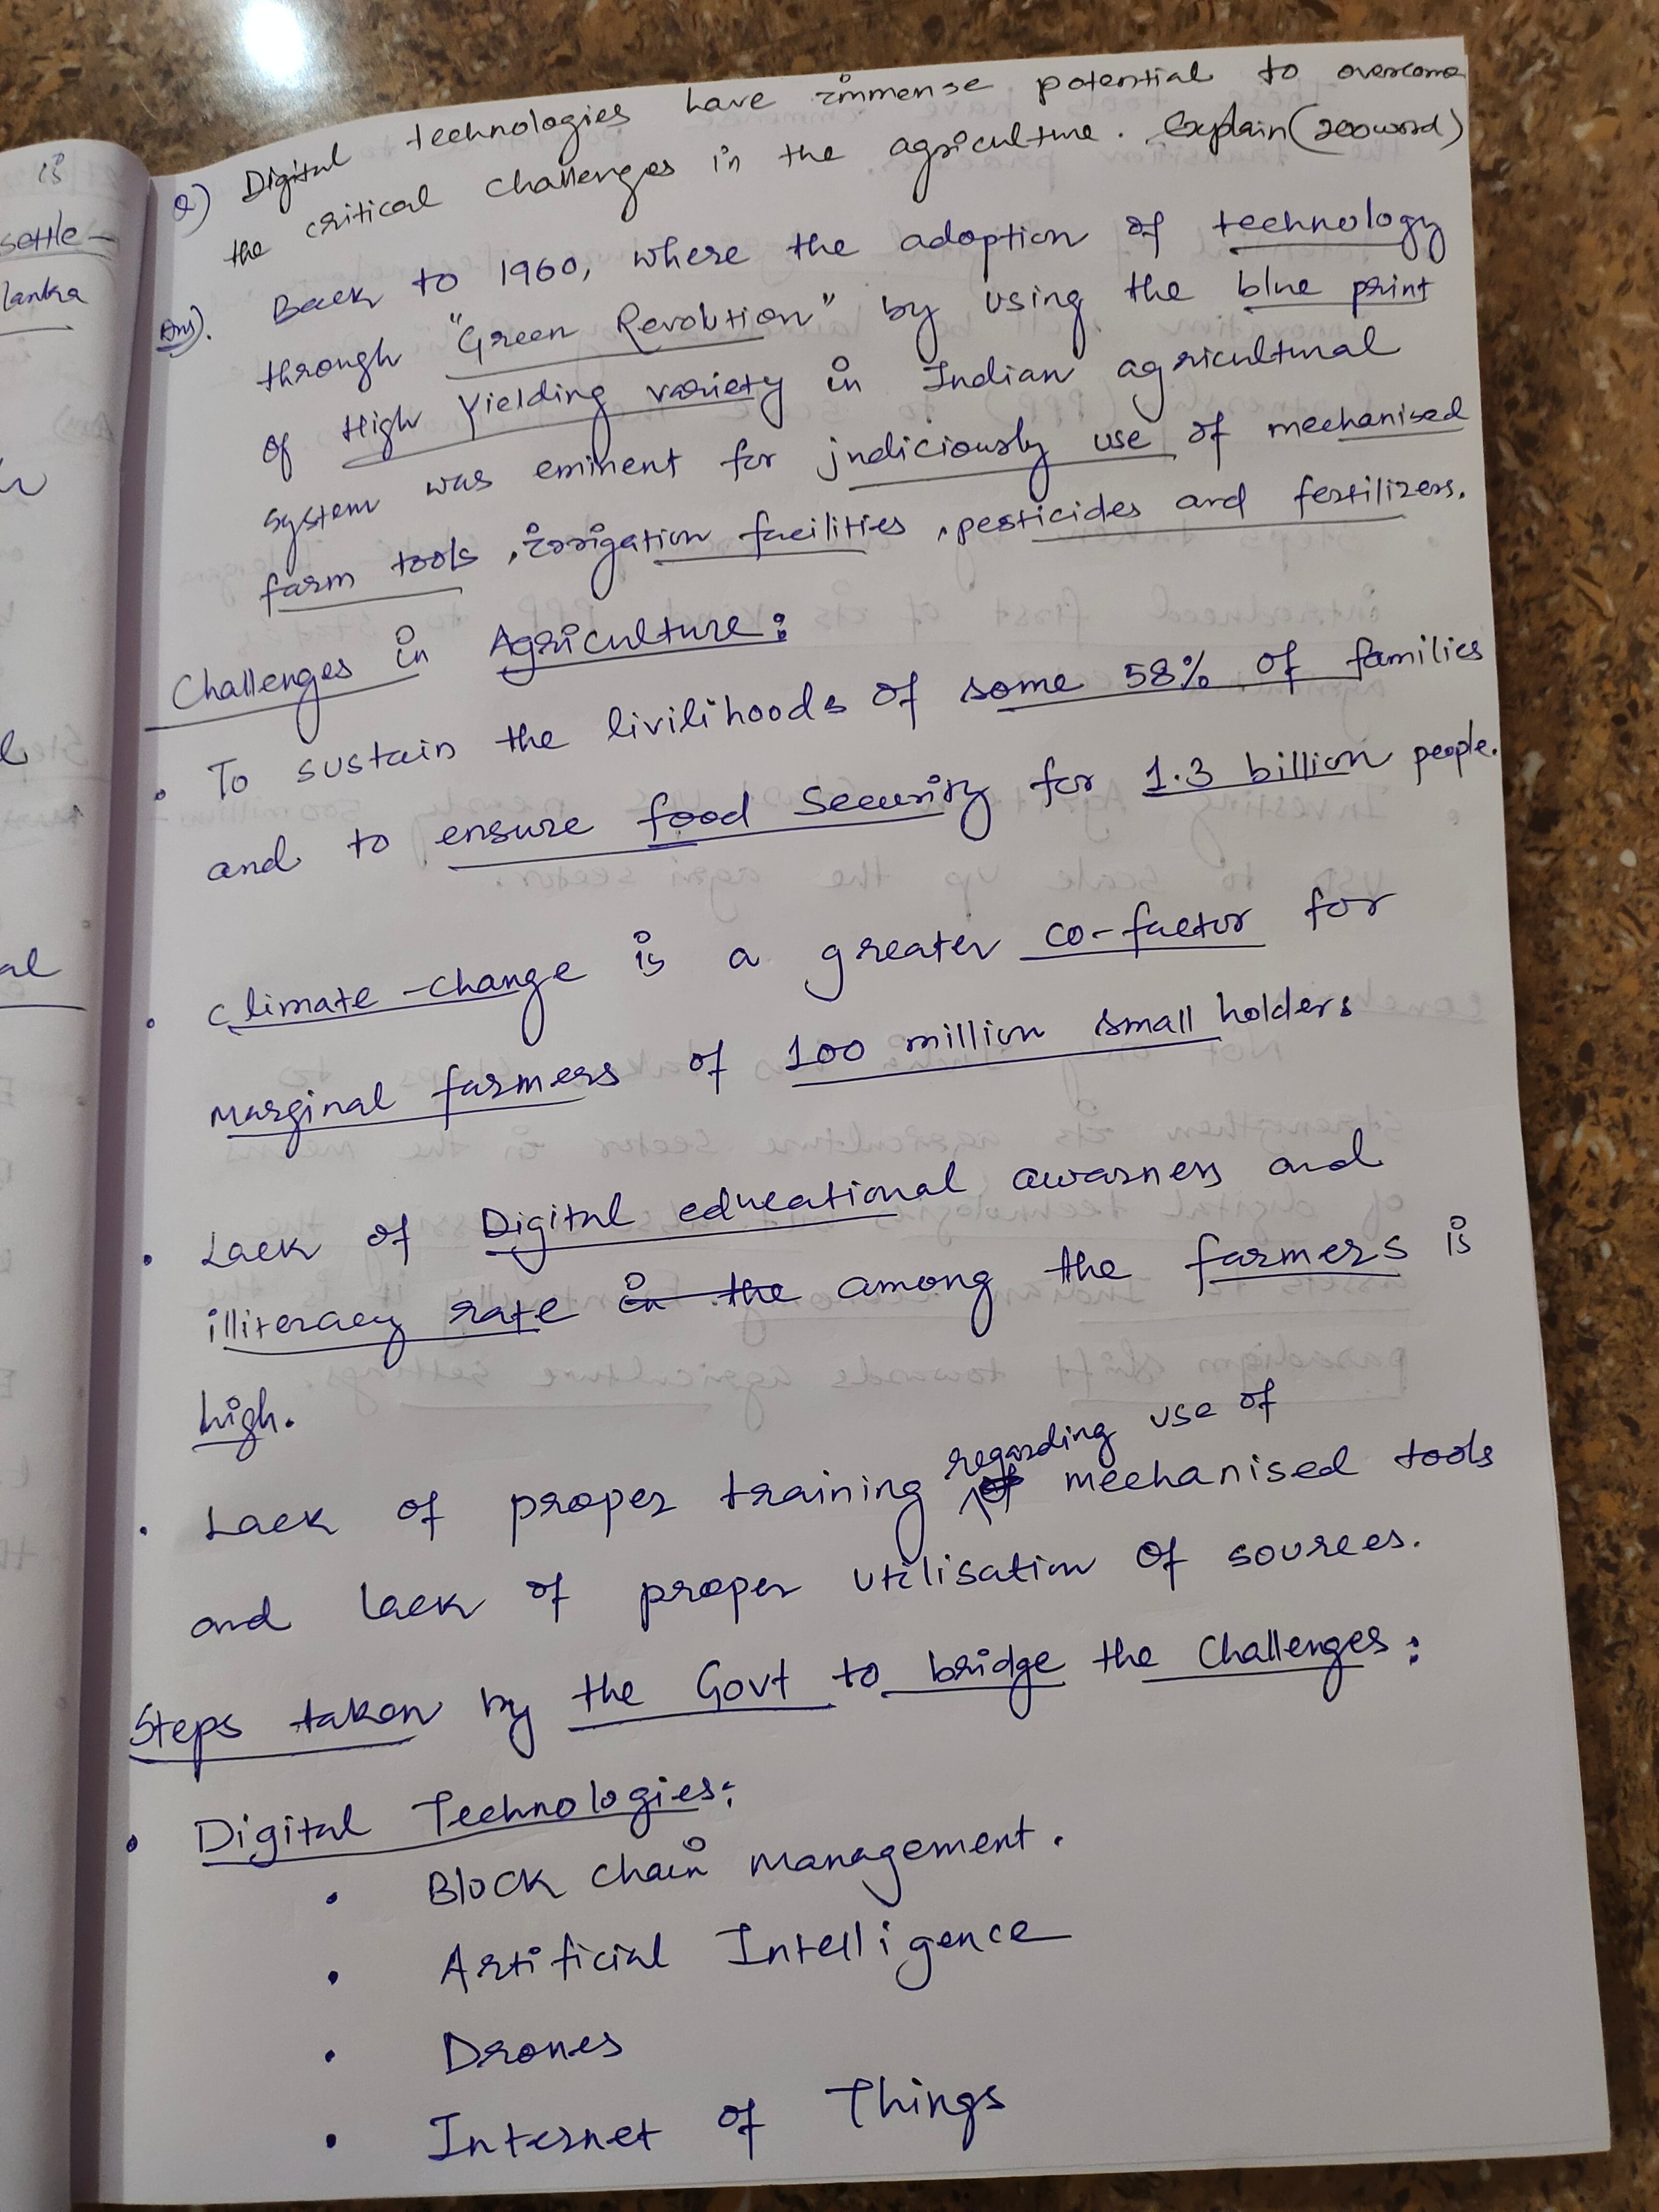 is
settle-
lanka
al
Q) Digital technologies have immense potential to overcome
the critical challenges in the agriculture. Explain (200word)
Ans). Back to 1960, where the adoption of technology
through "Green Revolution" by using the blue print
of High Yielding variety in Indian agricultural
system was eminent for judiciously use of mechanised
farm tools, irrigation facilities, pesticides and fertilizers.
Challenges in Agriculture:
• To sustain the livilihoods of some 58% of families
and to ensure food security for 1.3 billion people.
• Climate-change is a greater co-factor for
marginal farmers of 100 million small holders
• Lack of Digital educational awarness and
illiteracy rate in the among the farmers is
high.
• Lack of proper training regarding use of mechanised tools
and lack of proper utilisation of sources.
Steps taken by the Govt to bridge the challenges:
• Digital Technologies:
• Block chain management.
• Artificial Intelligence
• Drones
• Internet of Things